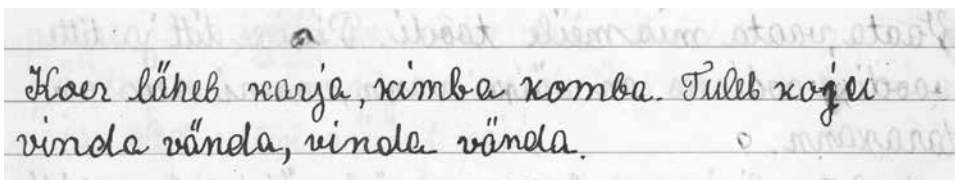 Koer läheb karja, kimba komba. Tuleb koju
vinda vända, vinda vända.